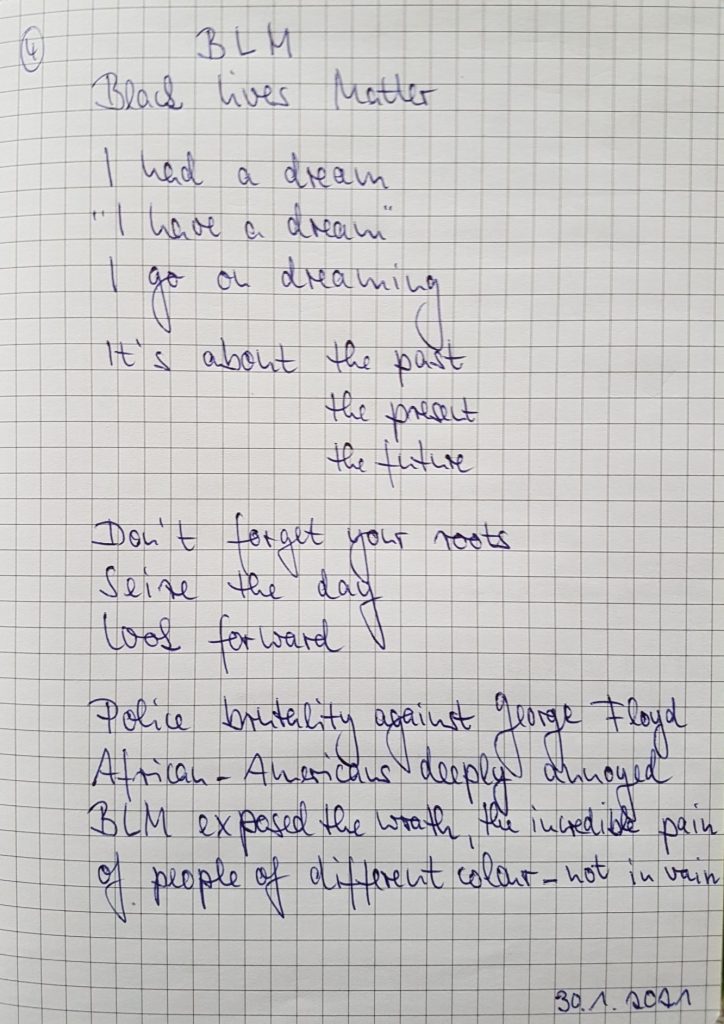 4
BLM
Black lives Matter
I had a dream
"I have a dream"
I go on dreaming
It's about the past
the present
the future
Don't forget your roots
Seize the day
Look forward
Police brutality against George Floyd
African-Americans deeply annoyed
BLM exposed the wrath, the incredible pain
of people of different colour - not in vain
30.1.2021